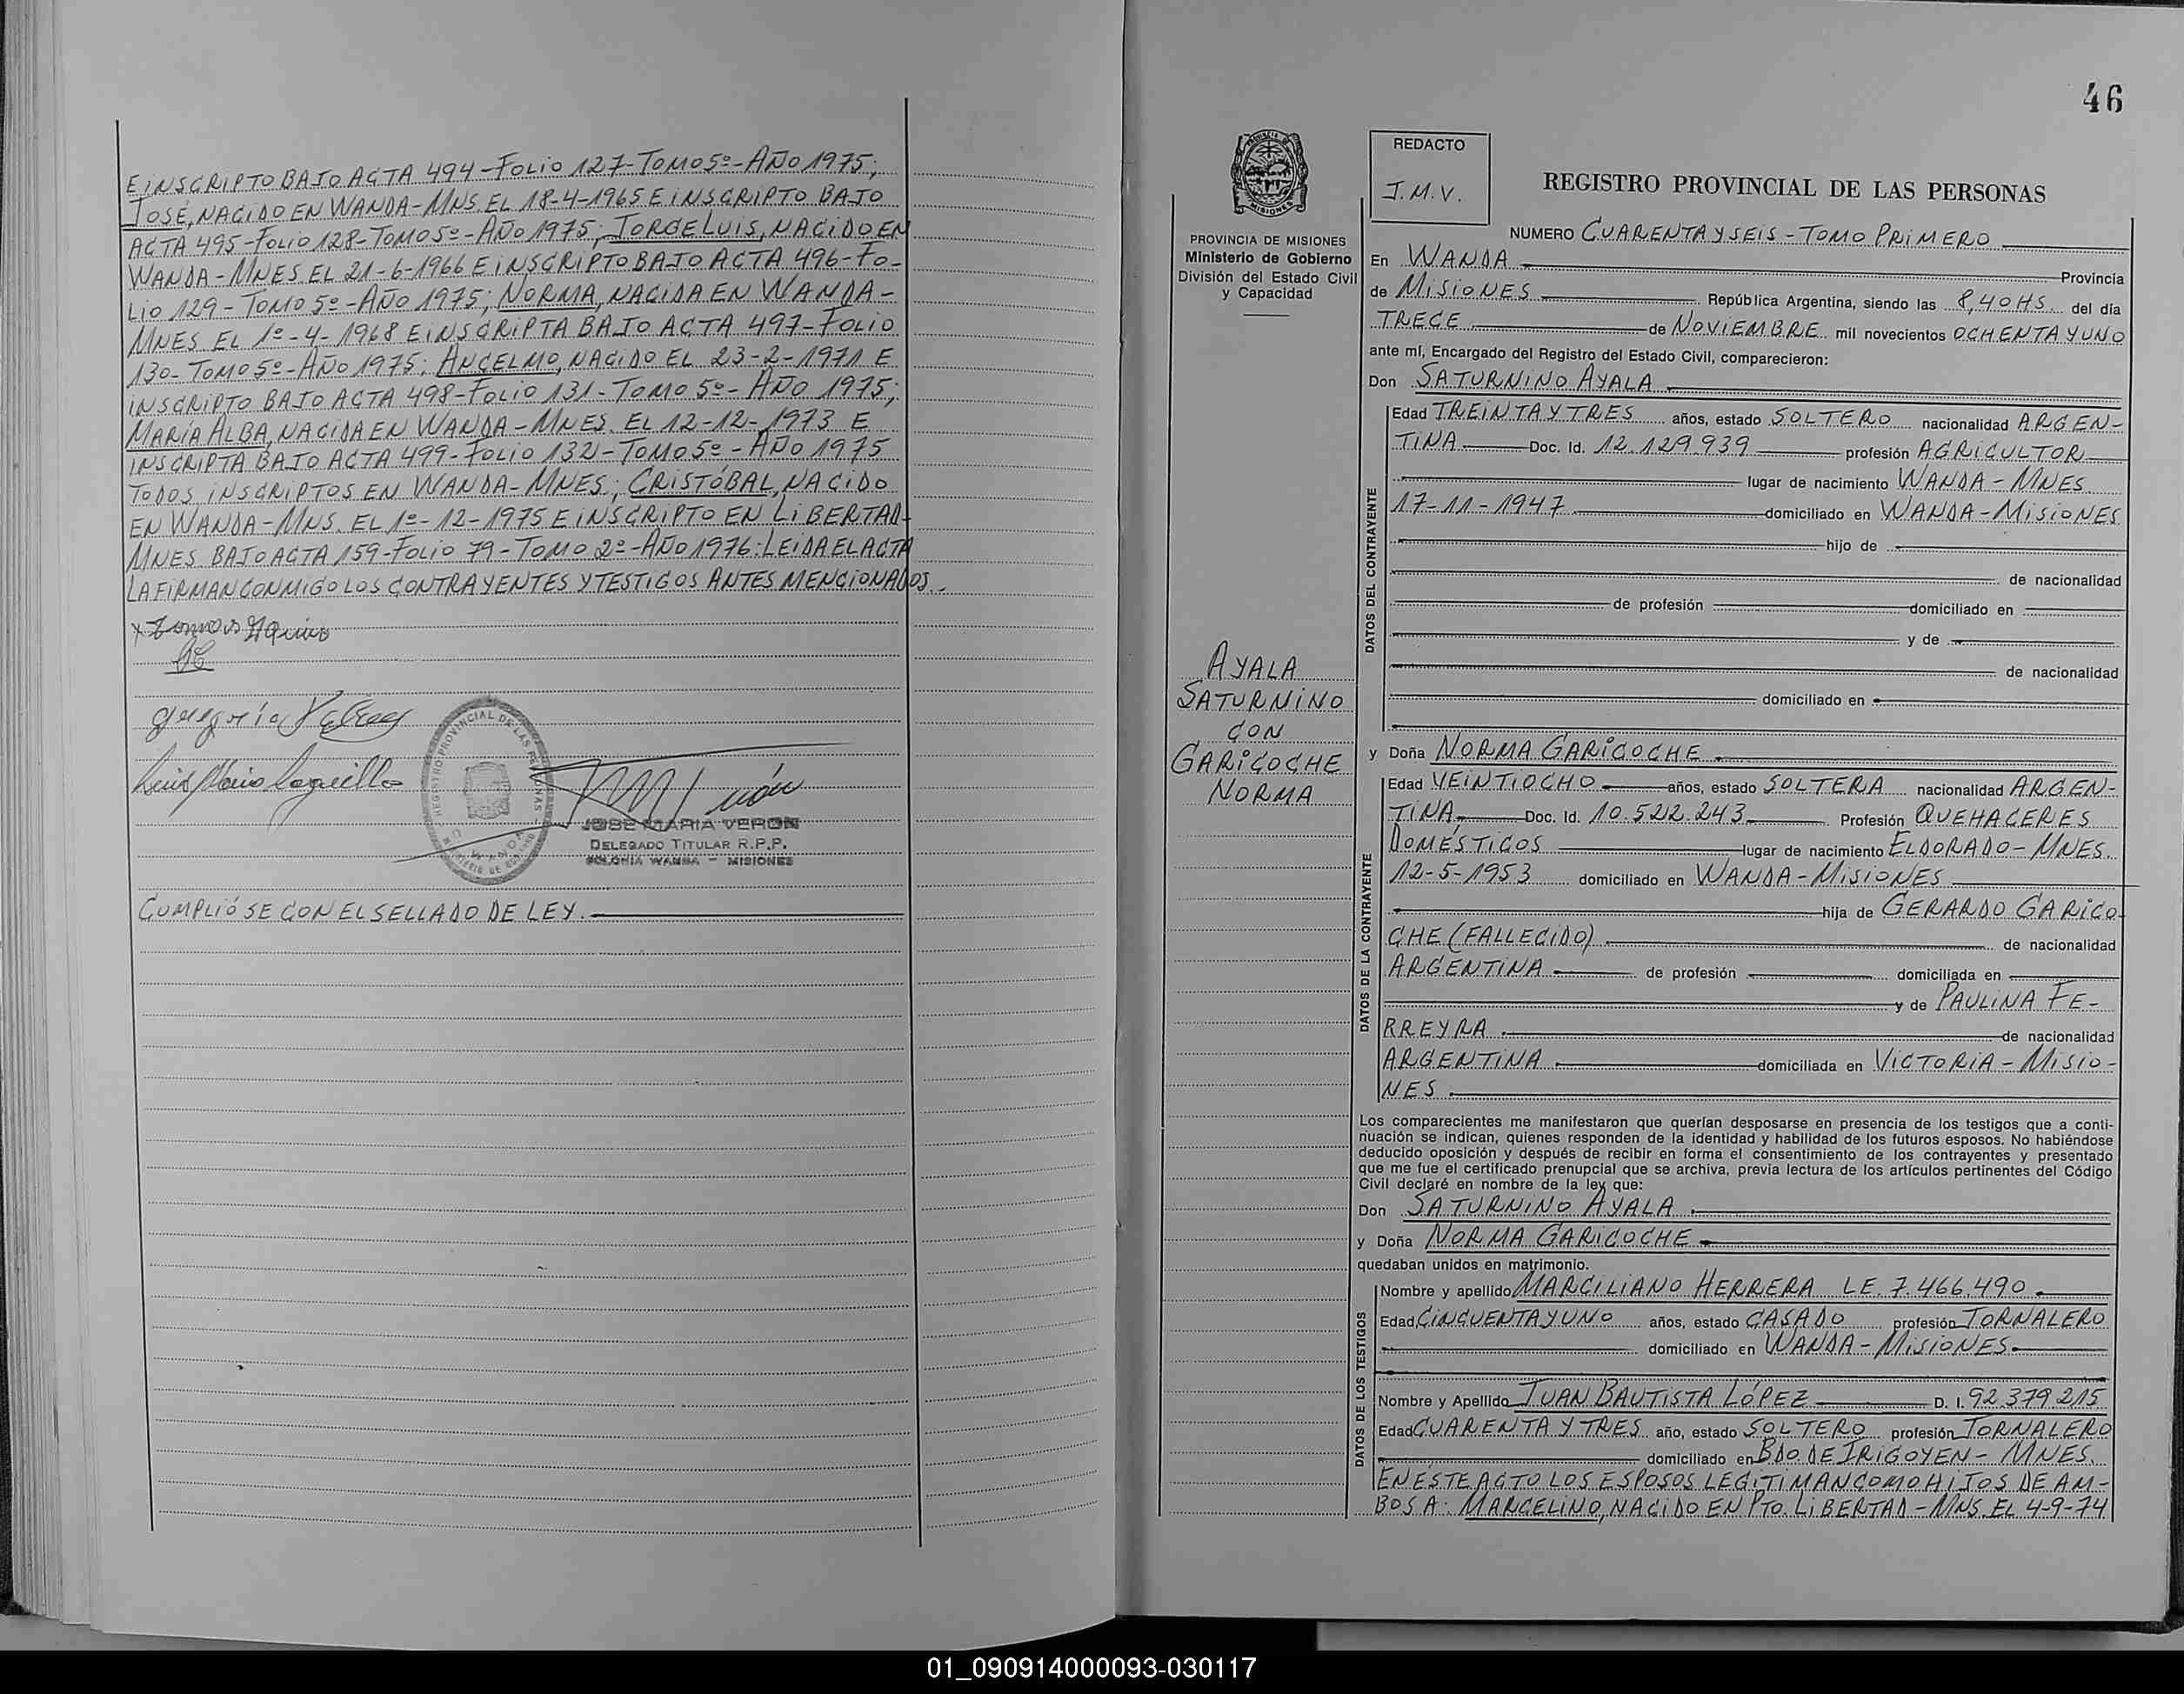 E INSCRIPTO BAJO ACTA 494-FOLIO 127-TOMO 5º-AÑO 1975;
JOSÉ, NACIDO EN WANDA-MNS. EL 18-4-1965 E INSCRIPTO BAJO
ACTA 495-FOLIO 128-TOMO 5º-AÑO 1975; JORGE LUIS, NACIDO EN
WANDA-MNES. EL 21-6-1966 E INSCRIPTO BAJO ACTA 496-FO-
LIO 129-TOMO 5º-AÑO 1975; NORMA, NACIDA EN WANDA-
MNES EL 1º-4-1968 E INSCRIPTA BAJO ACTA 497-FOLIO
130-TOMO 5º-AÑO 1975; ANGELMO, NACIDO EL 23-2-1971 E
INSCRIPTO BAJO ACTA 498-FOLIO 131-TOMO 5º-AÑO 1975;
MARÍA ALBA, NACIDA EN WANDA-MNES. EL 12-12-1973 E
INSCRIPTA BAJO ACTA 499-FOLIO 132-TOMO 5º-AÑO 1975
TODOS INSCRIPTOS EN WANDA-MNES; CRISTÓBAL, NACIDO
EN WANDA-MNS. EL 1º-12-1975 E INSCRIPTO EN LIBERTAD-
MNES BAJO ACTA 159-FOLIO 79-TOMO 2º-AÑO 1976: LEIDA EL ACTA
LA FIRMAN CONMIGO LOS CONTRAYENTES Y TESTIGOS ANTES MENCIONADOS.-
JOSE MARIA VERON
DELEGADO TITULAR R.P.P.
COLONIA WANDA - MISIONES
CUMPLIÓSE CON EL SELLADO DE LEY.
46
PROVINCIA DE MISIONES
Ministerio de Gobierno
División del Estado Civil
y Capacidad
AYALA
SATURNINO
CON
GARICOCHE
NORMA
REDACTO
J.M.V.
REGISTRO PROVINCIAL DE LAS PERSONAS
NUMERO CUARENTA Y SEIS-TOMO PRIMERO
En WANDA Provincia
de MISIONES República Argentina, siendo las 8,40 HS. del día
TRECE de NOVIEMBRE mil novecientos OCHENTA Y UNO
ante mí, Encargado del Registro del Estado Civil, comparecieron:
Don SATURNINO AYALA
DATOS DEL CONTRAYENTE
Edad TREINTA Y TRES años, estado SOLTERO nacionalidad ARGEN-
TINA Doc. Id. 12.129.939 profesión AGRICULTOR
lugar de nacimiento WANDA-MNES.
17-11-1947 domiciliado en WANDA-MISIONES
hijo de
de nacionalidad
de profesión domiciliado en
y de
de nacionalidad
domiciliado en
y Doña NORMA GARICOCHE
DATOS DE LA CONTRAYENTE
Edad VEINTIOCHO años, estado SOLTERA nacionalidad ARGEN-
TINA Doc. Id. 10.522.243 Profesión QUEHACERES
DOMÉSTICOS lugar de nacimiento ELDORADO-MNES.
12-5-1953 domiciliado en WANDA-MISIONES
hija de GERARDO GARICO-
CHE (FALLECIDO) de nacionalidad
ARGENTINA de profesión domiciliada en
y de PAULINA FE-
RREYRA de nacionalidad
ARGENTINA domiciliada en VICTORIA-MISIO-
NES.
Los comparecientes me manifestaron que querían desposarse en presencia de los testigos que a conti-
nuación se indican, quienes responden de la identidad y habilidad de los futuros esposos. No habiéndose
deducido oposición y después de recibir en forma el consentimiento de los contrayentes y presentado
que me fue el certificado prenupcial que se archiva, previa lectura de los artículos pertinentes del Código
Civil declaré en nombre de la ley que:
Don SATURNINO AYALA
y Doña NORMA GARICOCHE
quedaban unidos en matrimonio.
DATOS DE LOS TESTIGOS
Nombre y apellido MARCILIANO HERRERA LE. 7.466.490
Edad CINCUENTA Y UNO años, estado CASADO profesión JORNALERO
domiciliado en WANDA-MISIONES
Nombre y Apellido JUAN BAUTISTA LÓPEZ D. I. 92 379 215
Edad CUARENTA Y TRES año, estado SOLTERO profesión JORNALERO
domiciliado en BDO DE IRIGOYEN-MNES.
EN ESTE ACTO LOS ESPOSOS LEGITIMAN COMO HIJOS DE AM-
BOS A: MARCELINO, NACIDO EN PTO. LIBERTAD-MNS. EL 4-9-74
01_090914000093-030117